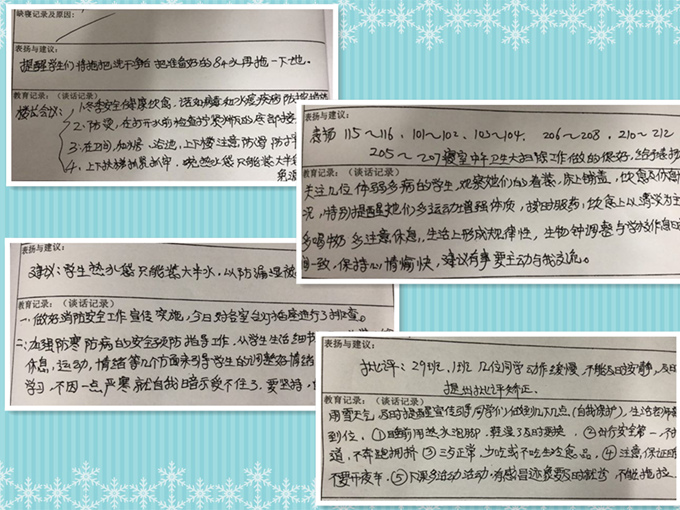 缺寝记录及原因:
表扬与建议:
提醒学生们将拖把洗干净后把准备好的84水再拖一下地。
教育记录:(谈话记录)
楼长会议: 1、冬季安全健康饮食,诺如病毒和水痘疾病防控措施
2、防烫,在打开水前检查拧紧水瓶的底部接
3、在卫间、如水房、浴池、上下楼注意防滑
4、上下扶梯
热水袋只能装大半
表扬与建议:
表扬 115~116、101~102、103~104、206~208、210~212
205~207寝室中午卫生大扫除工作做的很好,给予表扬
教育记录:(谈话记录)
关注几位体弱多病的学生,观察她们的着装、床上铺盖,饮食及休息情
况,特别提醒她们多运动增强体质,按时服药;饮食上以清淡为主
多喝奶多注意休息,生活上形成规律性,生物钟调整与学校作息时
间一致,保持心情愉快,建议有事要主动与我交流。
表扬与建议:
建议:学生热水袋只能装大半水,以防漏湿被
教育记录:(谈话记录)
一、做好消防安全工作宣传实施,今日对各室台灯插座进行了排查。
二、加强防寒防病的安全预防指导工作,从学生生活细节
休息,运动,情绪等几个方面来引导学生的调整好情绪
学习,不因一点严寒就自我暗示受不住了,要坚持,
表扬与建议:
批评:29班、1班 几位同学动作缓慢,不能及时安静,及时
提出批评矫正。
教育记录:(谈话记录)
雨雪天气,及时提醒宣传引导同学们做到以下几点(自我保护),生活老师
到位。①睡前用热水泡脚,鞋湿了及时更换 ②好好安全第一,不
道,不奔跑拥挤 ③三歺正常,少吃或不吃生冷食品。④注意保证
不要开夜车。⑤下课多运动活动,有感冒迹象要及时就诊,不能拖拉